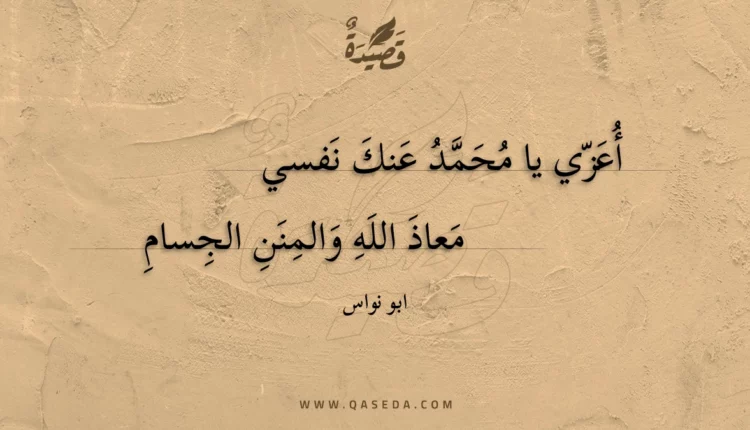 قَصِيدَةٌ
أُعَزّي يا مُحَمَّدُ عَنكَ نَفسي
مَعاذَ اللَهِ وَالمِنَنِ الجِسامِ
ابو نواس
WWW.QASEDA.COM